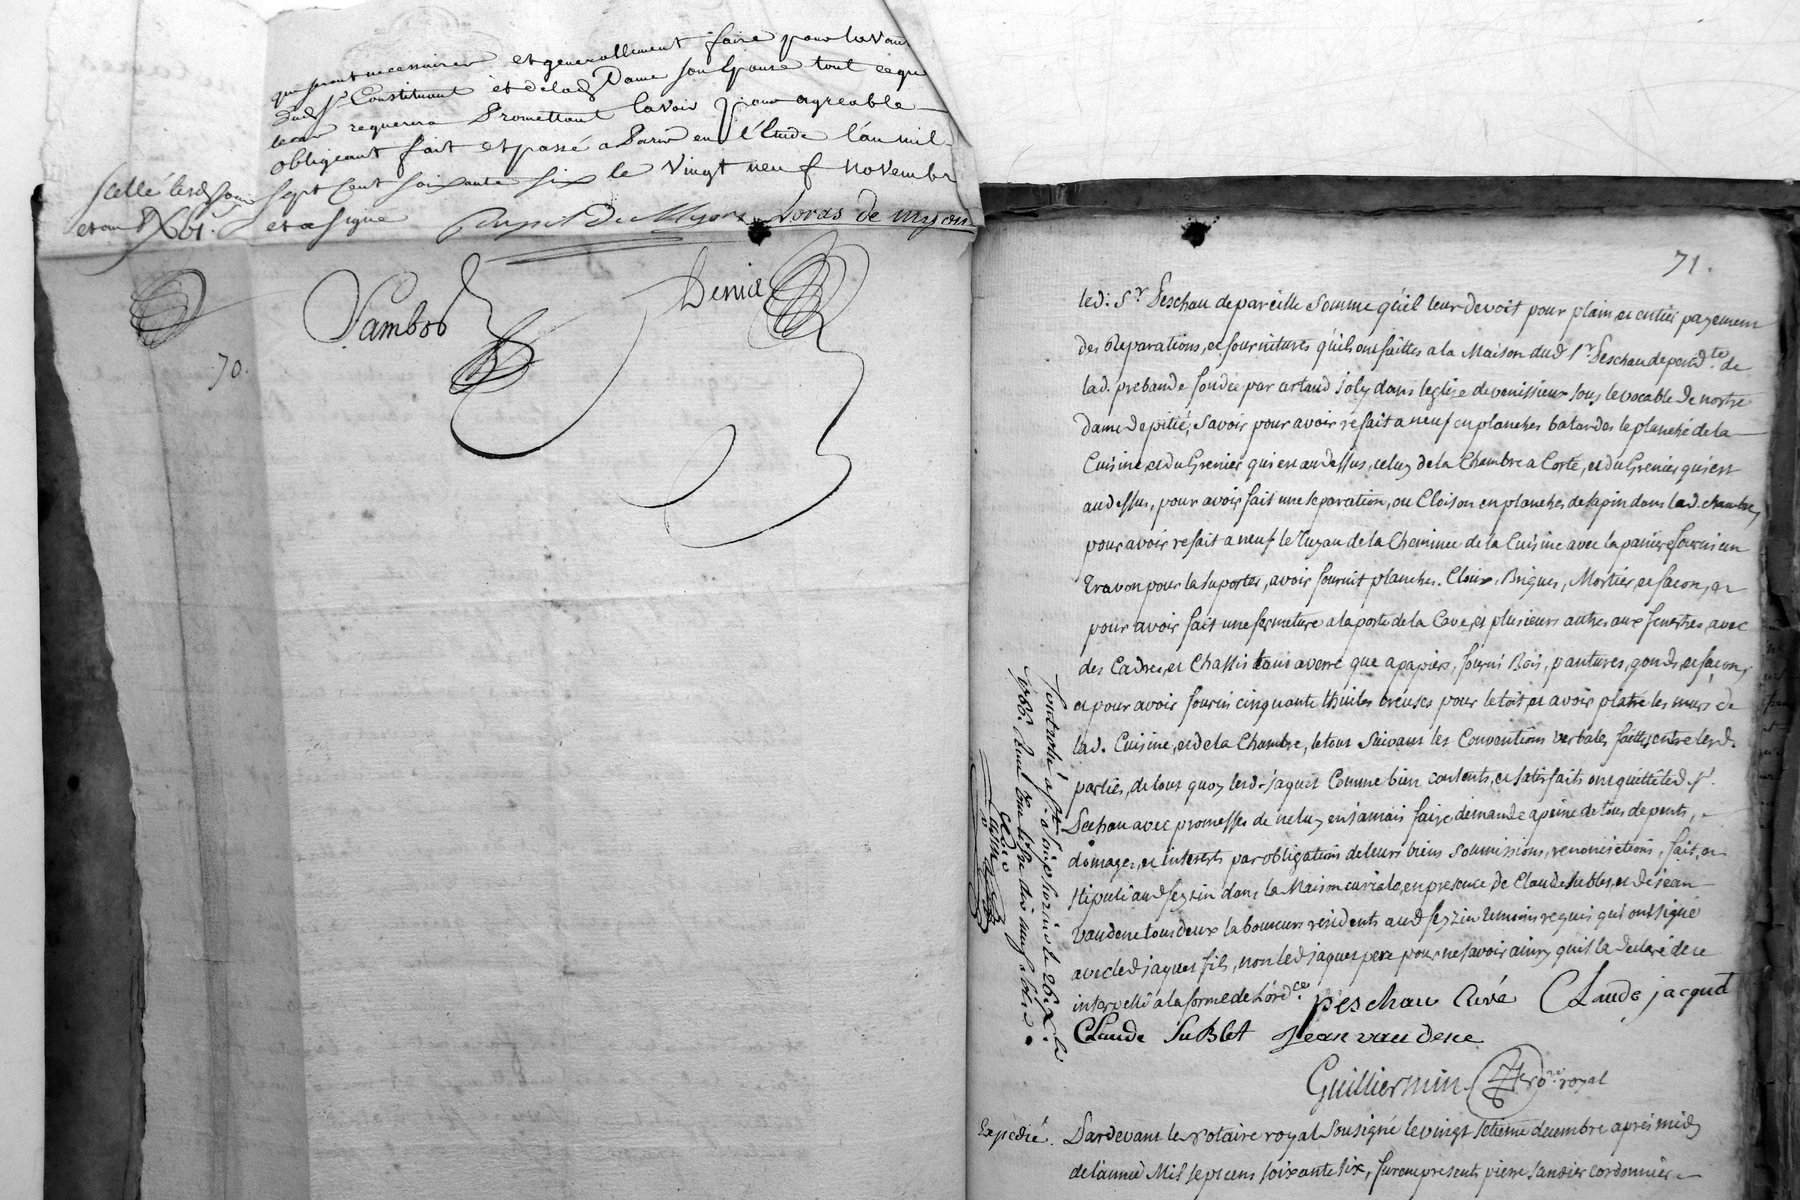 qui seront necessaires et generallement faire pour lavant
dudt Sr. Constituant et de lad. Dame son Epouse tout ce que
le cas requerra Promettant lavoir pour agreable
obligeant fait et passé a Paris en l'Etude l'an mil
sept cent soixante six le vingt neuf novembre
et a signé
scellé lesd. jour
et an
Loras de
Denis
70.
71.
led. Sr. Peschau de pareille somme qu'il leur devoit pour plain, et entier payement
des Reparations, et fournitures qu'ils ont faittes a la Maison dud Sr Peschau dependte. de
lad. prebande fondée par artaud joly dans leglize de venissieux sous le vocable de nostre
dame de pitié, Savoir pour avoir refait a neuf en planches batardes le planché de la
Cuisine, et du Grenier qui est au dessus, celuy de la Chambre a Corté, et du Grenier qui est
au dessus, pour avoir fait une separation, ou Cloison en planches de sapin dans lad. chambre,
pour avoir refait a neuf le Tuyau de la Cheminee de la Cuisine avec la paniere fourni un
travon pour la suporter, avoir fournit planches. Cloux, Briques, Mortier, et façon, et
pour avoir fait une fermeture a la porte de la Cave, et plusieurs autres aux fenestres, avec
des Cadres, et Chassis tant a verre que a papiers, fourni Bois, pantures, gonds, et façon,
et pour avoir fourni cinquante thuiles creuses pour le toit, et avoir platré les murs de
lad. Cuisine, et de la Chambre, le tout Suivant les Conventions verbales faittes entre lesd.
parties, de tout quoy lesd. jaquet Comme bien contents, et satisfaits ont quitté led. Sr.
Peschau avec promesses de ne luy en jamais faire demande a peine de tous depents,
domages, et interets par obligations de leurs biens Soumissions, renonciations, fait, et
stipulé aud feyzin dans la Maison curiale, en presence de Claude Sublet, et de jean
vaudene tous deux laboureurs residents aud feyzin temoins requis qui ont signé
avec led jaquet fils, non led jaquet pere pour ne savoir ainsy qu'il la declaré de ce
interpellé a la forme de l'ordce.
peschau Curé Claude jacquet
Claude SuBlet Jean vaudene
Guilliermin
royal
Controllé a St. Simphorien le 26 Xbre
1766.
Expedié.
Pardevant le Notaire royal Sousigné le vingt setieme decembre après midy
de l'année Mil sept cens soixante six, furent presents pierre Sandier cordonnier